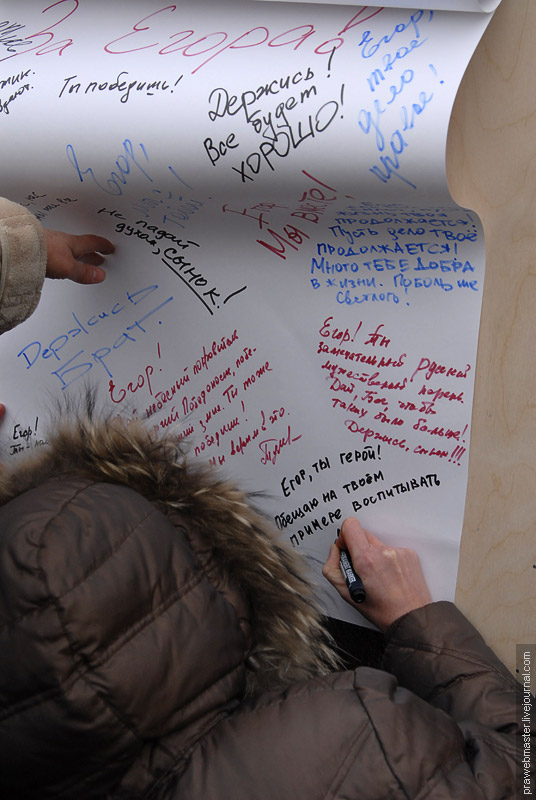 За Егора!
Ты победишь!
Держись!
Все будет
ХОРОШО!
Егор,
твое
дело
правое!
Егор,
не падай
духом,
СЫНОК!
Мы вместе!
продолжается!
Пусть дело твоё
ПРОДОЛЖАЕТСЯ!
Много ТЕБЕ ДОБРА
В жизни. ПОБОЛЬШЕ
Светлого!
Держись
Брат!
Егор!
небесный покровитель
Победоносец, побе-
змия. Ты тоже
победишь!
Мы верим в это.
Егор! Ты
замечательный русский
мужественный парень
Дай, Бог чтобы
таких было больше!
Держись, сынок!!!
Егор!
Ты
Егор, ты герой!
Обещаю на твоём
примере воспитывать
prawebmaster.livejournal.com